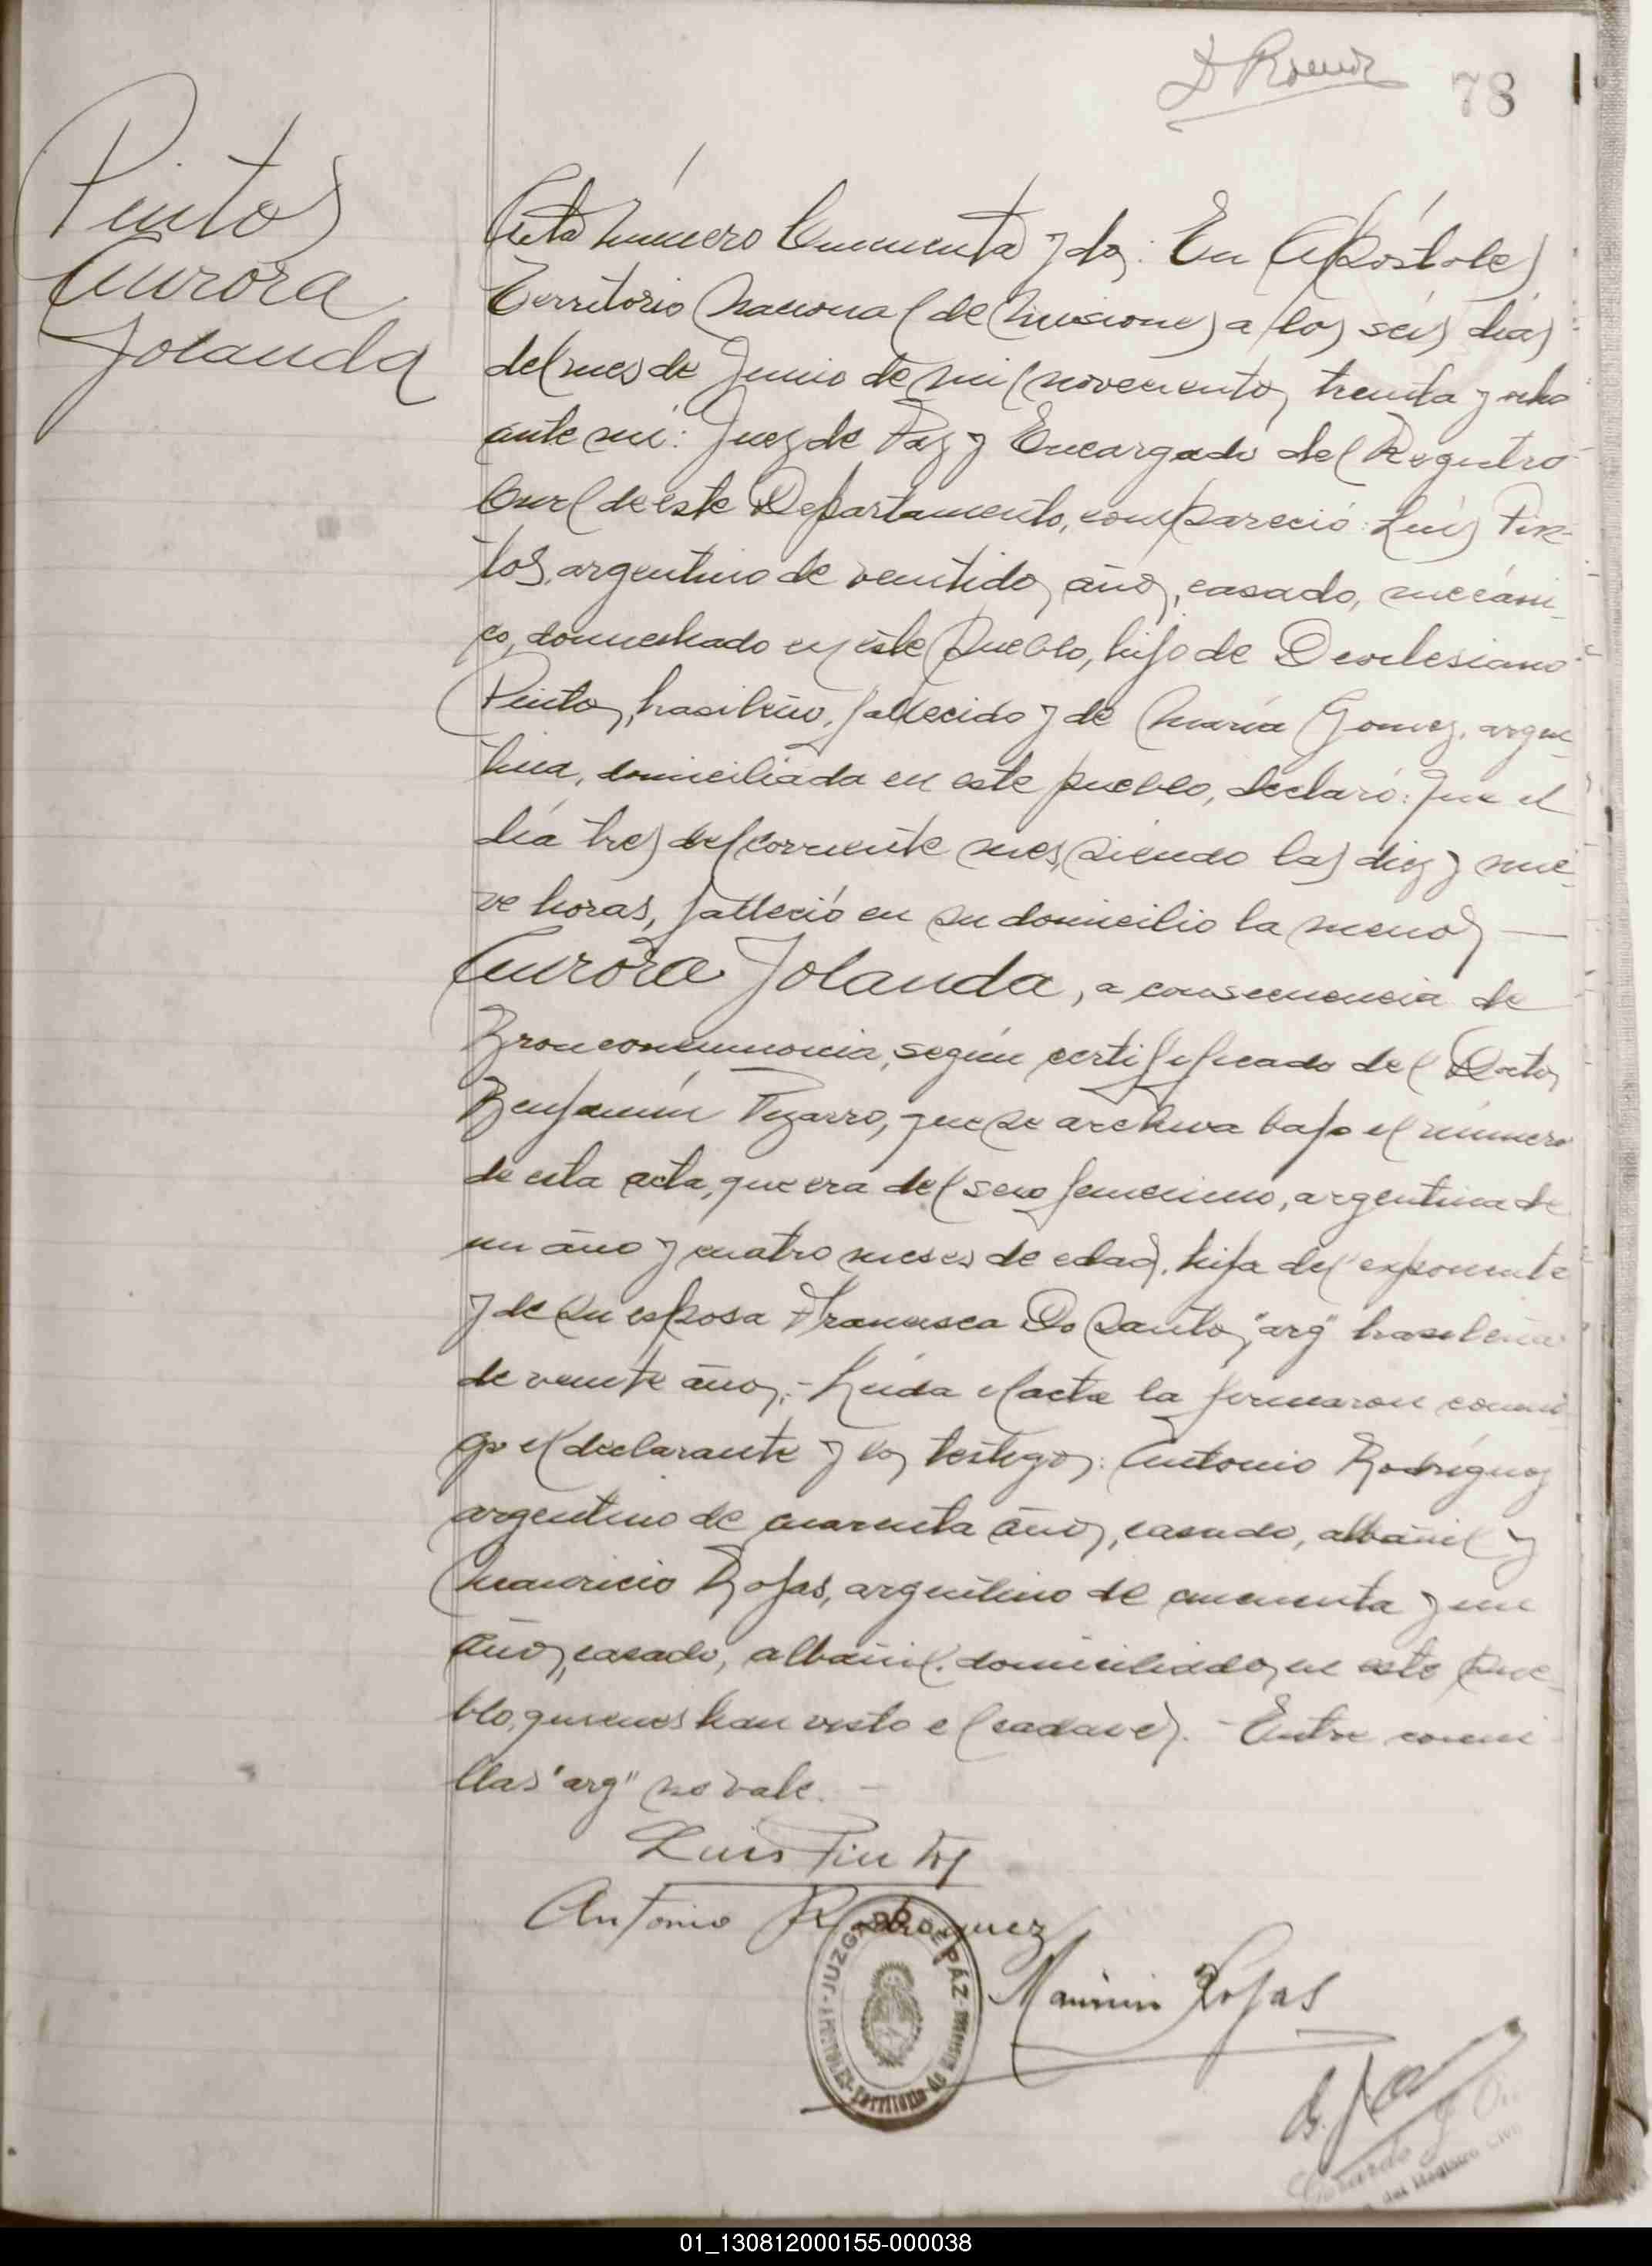 78
Pintos
Aurora
Jolanda
Acta número Cincuenta y dos: En Apóstoles
Territorio Nacional de Misiones a los seis días
del mes de Junio de mil novecientos treinta y ocho
ante mí: Juez de Paz y Encargado del Registro
Civil de este Departamento, compareció: Luís Pin-
tos, argentino de ventidos años, casado, mecáni-
co, domiciliado en éste pueblo, hijo de Deoclesiano
Pintos, brasileño, fallecido y de María Gomez, argen-
tina, domiciliada en este pueblo, declaró: Que el
día tres del corriente mes, siendo las diez y nue-
ve horas, falleció en su domicilio la menor —
Aurora Jolanda, a consecuencia de
Bronconeumonia, según certifificado del Doctor
Benjamín Pizarro, que se archiva bajo el número
de esta acta, que era del sexo femenino, argentina de
un año y cuatro meses de edad, hija del exponente
y de su esposa Francisca Do Santos, "arg" brasileña
de veinte años.- Leída el acta la firmaron conmi-
go el declarante y los testigos: Antonio Rodríguez
argentino de cuarenta años, casado, albañil y
Mauricio Rojas, argentino de cincuenta y un
años, casado, albañil, domiciliados en este pue-
blo, quienes han visto el cadaver. - Entre comi-
llas "arg" no vale. -
Luis Pintos
Antonio Rodriguez
JUZGADO DE PÁZ - APOSTOLES - Territorio de Misiones
Rojas
del Registro Civil
01_130812000155-000038